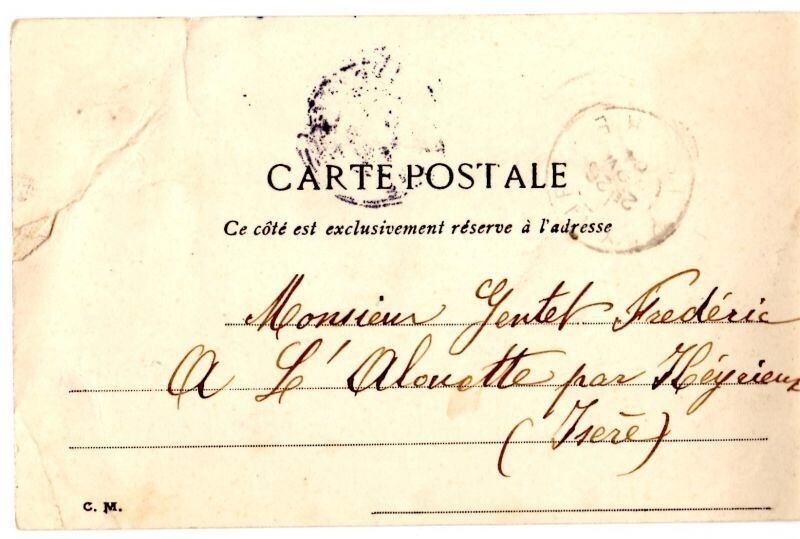 CARTE POSTALE
Ce côté est exclusivement réservé à l'adresse
Monsieur Gentet Frédéric
A L' Alouette par Héyrieux
(Isère)
C. M.